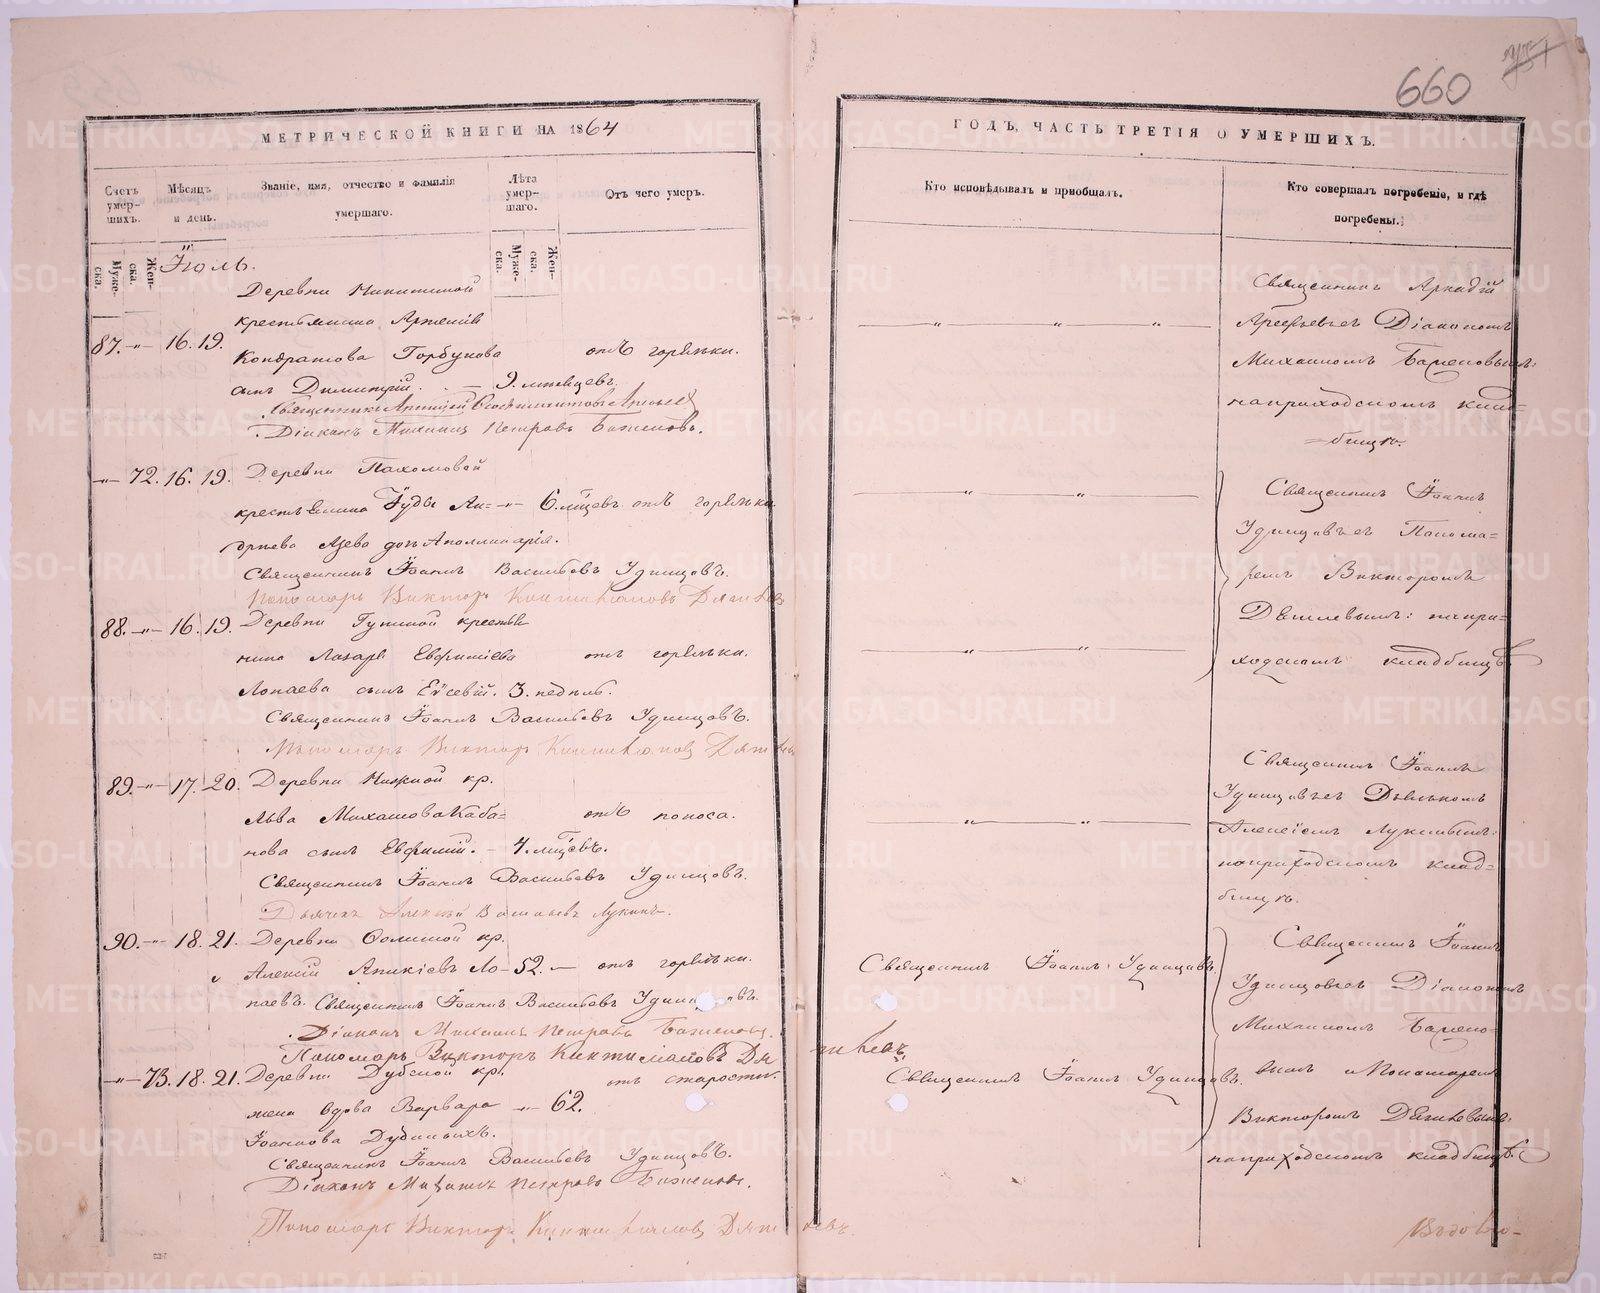 660
МЕТРИЧЕСКОЙ КНИГИ НА 1864
ГОДЪ, ЧАСТЬ ТРЕТІЯ О УМЕРШИХЪ.
Счетъ умер-шихъ.
Мѣсяцъ и день.
Званіе, имя, отчество и фамилія умершаго.
Лѣта умер-шаго.
Отъ чего умеръ.
Муже-ска.
Жен-ска.
Муже-ска.
Жен-ска.
Кто исповѣдывалъ и пріобщалъ.
Кто совершалъ погребеніе, и гдѣ погребены.
Іюль.
Деревни Никитиной
крестьянина Артемія
87. -"- 16. 19. Кондратова Горбунова отъ горячки.
сынъ Димитрій. - 9. мѣсяцевъ.
Діаконъ Михаилъ Петровъ Баженовъ.
-"- 72. 16. 19. Деревни Пахомовой
крестьянина Іуды Ан= -"- 6. мѣсяцев отъ горячки
дреева дочь Аполлинарія.
Священникъ Іоаннъ Васильевъ Удинцовъ.
Пономарь Викторъ
88. -"- 16. 19. Деревни крестья
нина Лазаря Евфиміева отъ горячки.
Лопаева сынъ Евсевій. 3. недѣль.
Священникъ Іоаннъ Васильевъ Удинцовъ.
Пономарь Викторъ
89. -"- 17. 20. Деревни Нижной кр.
Льва Михаилова Каба= отъ поноса.
нова сынъ Евфимій. - 4. мѣсяцевъ.
Священникъ Іоаннъ Васильевъ Удинцовъ.
Дьячекъ Алексій Васильевъ Лукинъ.
90. -"- 18. 21. Деревни кр.
Алексій Аникіевъ Ло- 52. - отъ горячки.
паевъ. Священникъ Іоаннъ Васильевъ Удинцовъ.
Діаконъ Михаилъ Петровъ Баженовъ.
Пономарь Викторъ
-"- 73. 18. 21. Деревни Дубской кр. отъ старости.
жена вдова Варвара -"- 62.
Іоаннова Дубскихъ.
Священникъ Іоаннъ Васильевъ Удинцовъ.
Діаконъ Михаилъ Петровъ Баженовъ.
Пономарь Викторъ
Священникъ Іоаннъ Удинцовъ.
Священникъ Іоаннъ Удинцовъ.
Священникъ Аркадій
Арефьевъ съ Діакономъ
Михаиломъ Баженовымъ:
на приходскомъ клад=
=бищѣ.
Священникъ Іоаннъ
Удинцовъ съ Понома=
ремъ Викторомъ
: на при=
ходскомъ кладбищѣ.
Священникъ Іоаннъ
Удинцовъ съ Дьячкомъ
Алексіемъ Лукинымъ:
на приходскомъ клад=
бищѣ.
Священникъ Іоаннъ
Удинцовъ съ Діакономъ
Михаиломъ Бажено-
вымъ и Пономаремъ
Викторомъ
на приходскомъ кладбищѣ.
METRIKI.GASO-URAL.RU